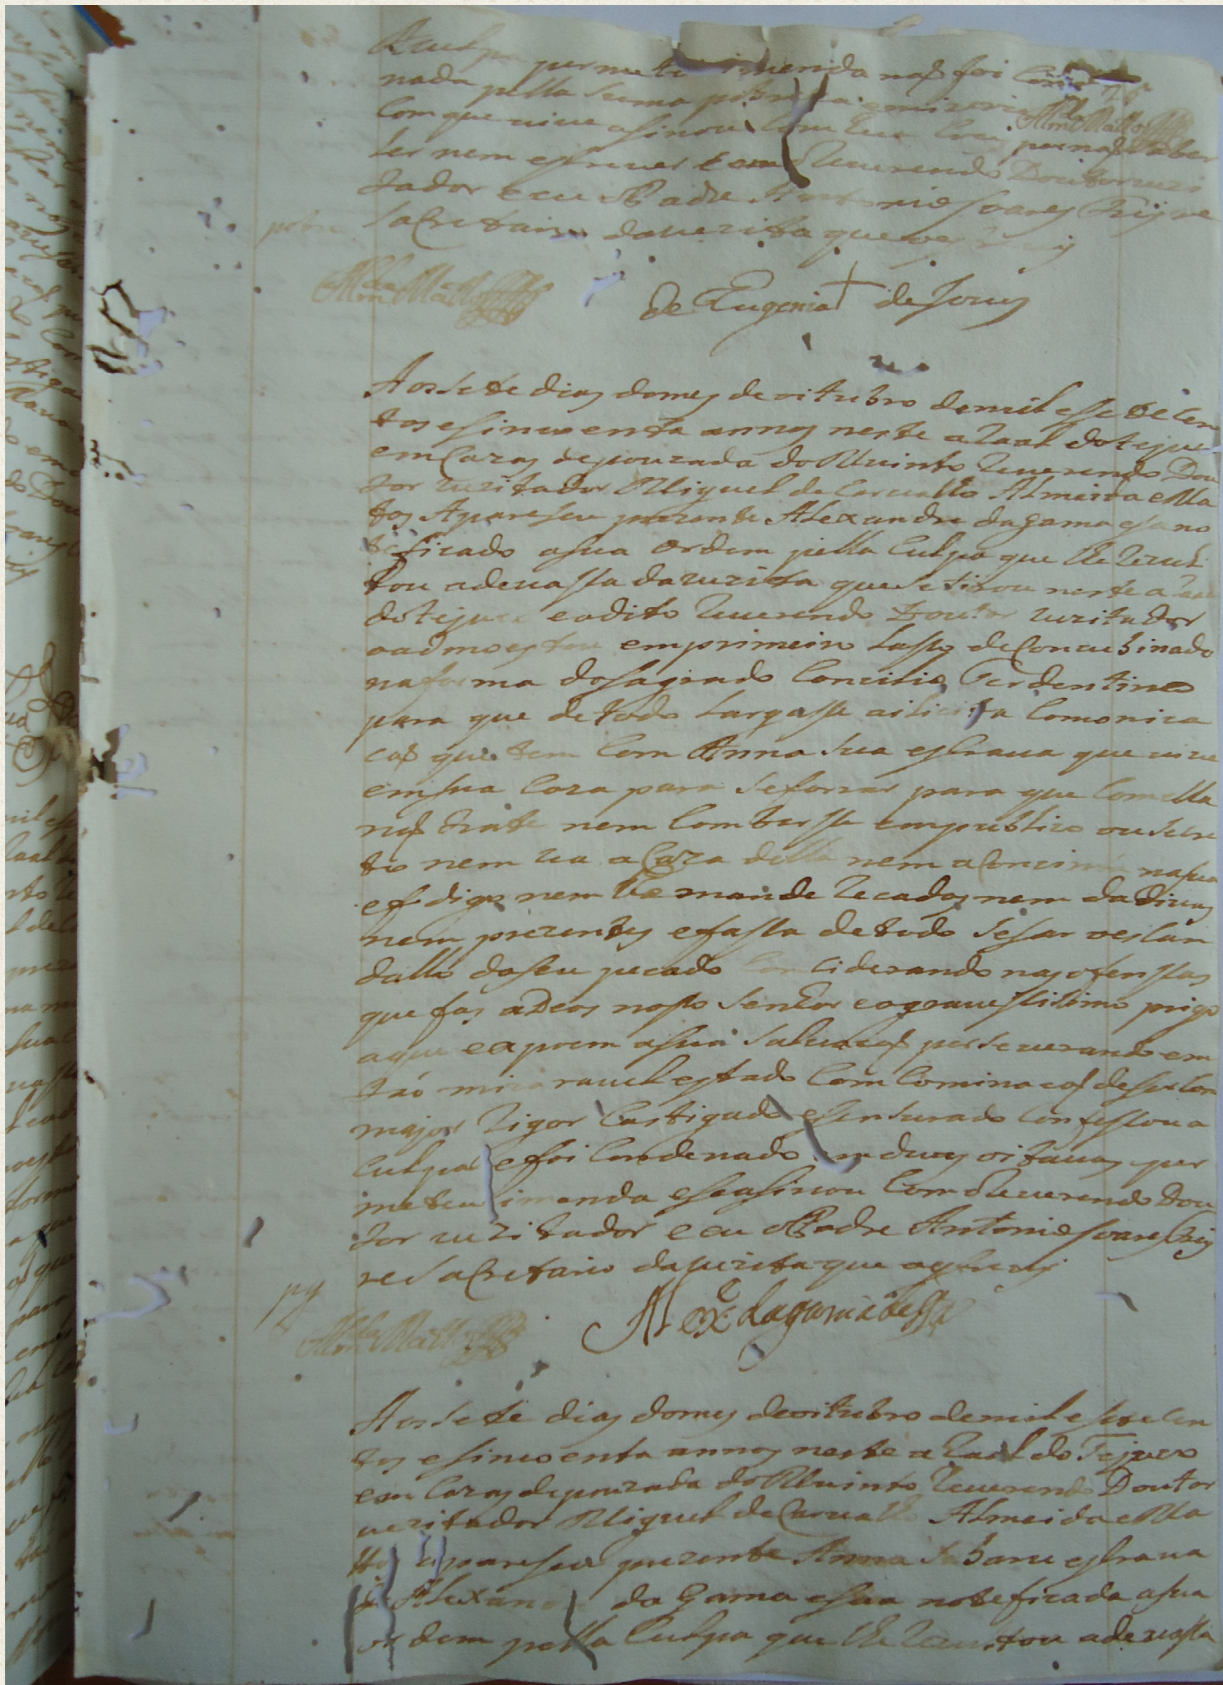 a culpa permeteu imenda naõ foi
nada pella suma pobreza e mizeria
Com que vive asinou Com hua Crus por naõ saber
ler nem escrever e com o Reverendo Doutor vizi
tador e eu o Padre Antonio Soares Freyre
saCretario da vezita que o escrevy
de Eugenia + de Jesus
Aos sete dias do mes de oitubro de mil e sete cen
tos e sincoenta annos neste aRaal do tejuco
em Cazas de pouzada do Muinto Reverendo Dou
tor vizitador Miguel de Carvalho Almeida e Ma
tos Apareseu prezente Alexandre da gama e sa no
teficado a sua ordem pella Culpa que lhe Rezul
tou a devassa da vizita que se tirou neste aRaal
do tejuco e o dito Reverendo Doutor vizitador
o admoestou em primeiro Lapso de Concubinado
na forma do sagrado Concilio Terdentino
para que de todo Largasse a ilicita Comonica
caõ que tem Com Anna sua esCrava que vive
em sua Caza para se forrar para que Com ella
naõ trate nem Combersse em publico ou secre
to nem va a Caza della nem a Concinta na sua
e digo nem lhe mande Recados nem dadivas
nem prezentes e fassa de todo sesar o escan
dallo do seu pecado Conciderando nas ofenssas
que fas a Deos nosso Senhor e o gravessisimo prigo
a que expoem a sua salvacaõ perseverando em
taõ mizeravel estado Com Cominacaõ de ser Com
major Rigor Castigado e sensurado Confessou a
Culpa e foi Condenado em duas oitavas per
meteu imenda e se asinou Com o Reverendo Dou
tor vizitador e eu o Padre Antonio Soares Frey
re saCretario da vezita que o escrevy
pg
Alexe da gama
Aos sete dias do mes de oitubro de mil e setecen
tos e sincoenta annos neste aRaal do Tejuco
em Cazas de pouzada do Muinto Reverendo Doutor
vezitador Miguel de Carvalho Almeida e Ma
tos apareseu prezente Anna esCrava
de Alexandre da Gama e sua noteficada a sua
ordem pella Culpa que lhe Rezultou a devassa